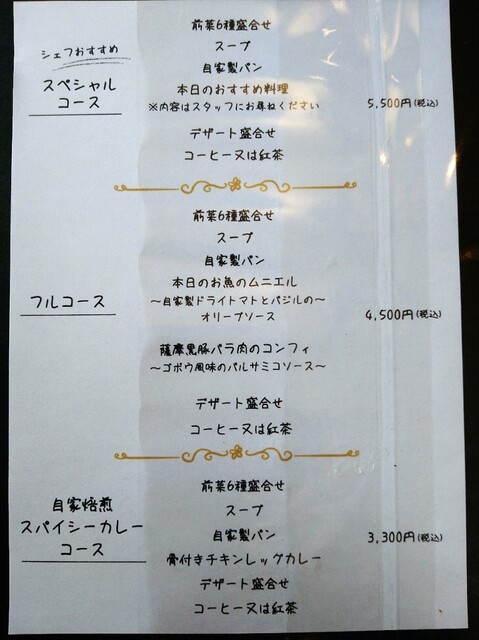 シェフおすすめ
スペシャル
コース
前菜6種盛合せ
スープ
自家製パン
本日のおすすめ料理
※内容はスタッフにお尋ねください
デザート盛合せ
コーヒー又は紅茶
5,500円(税込)
フルコース
前菜6種盛合せ
スープ
自家製パン
本日のお魚のムニエル
～自家製ドライトマトとバジルの～
オリーブソース
薩摩黒豚バラ肉のコンフィ
～ゴボウ風味のバルサミコソース～
デザート盛合せ
コーヒー又は紅茶
4,500円(税込)
自家焙煎
スパイシーカレー
コース
前菜6種盛合せ
スープ
自家製パン
骨付きチキンレッグカレー
デザート盛合せ
コーヒー又は紅茶
3,300円(税込)